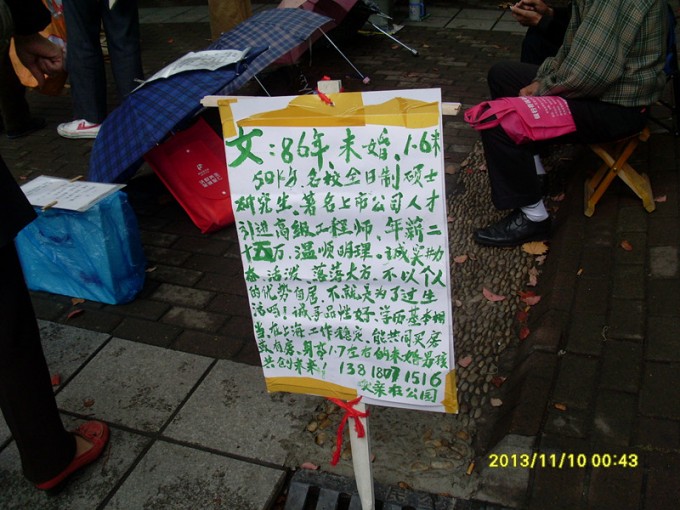 女：86年，未婚、1.6米
50kg 名校全日制硕士
研究生、著名上市公司人才
引进高级工程师，年薪二
十五万，温顺明理、诚实,
活泼、落落大方，不以个人
的优势自居，不就是为了过生
活吗！诚寻品性好，学历基本相
当，在上海工作稳定，能共同买房
或有房，身高1.7左右的未婚男孩
共创未来！13818071516
父亲在公园
2013/11/10 00:43